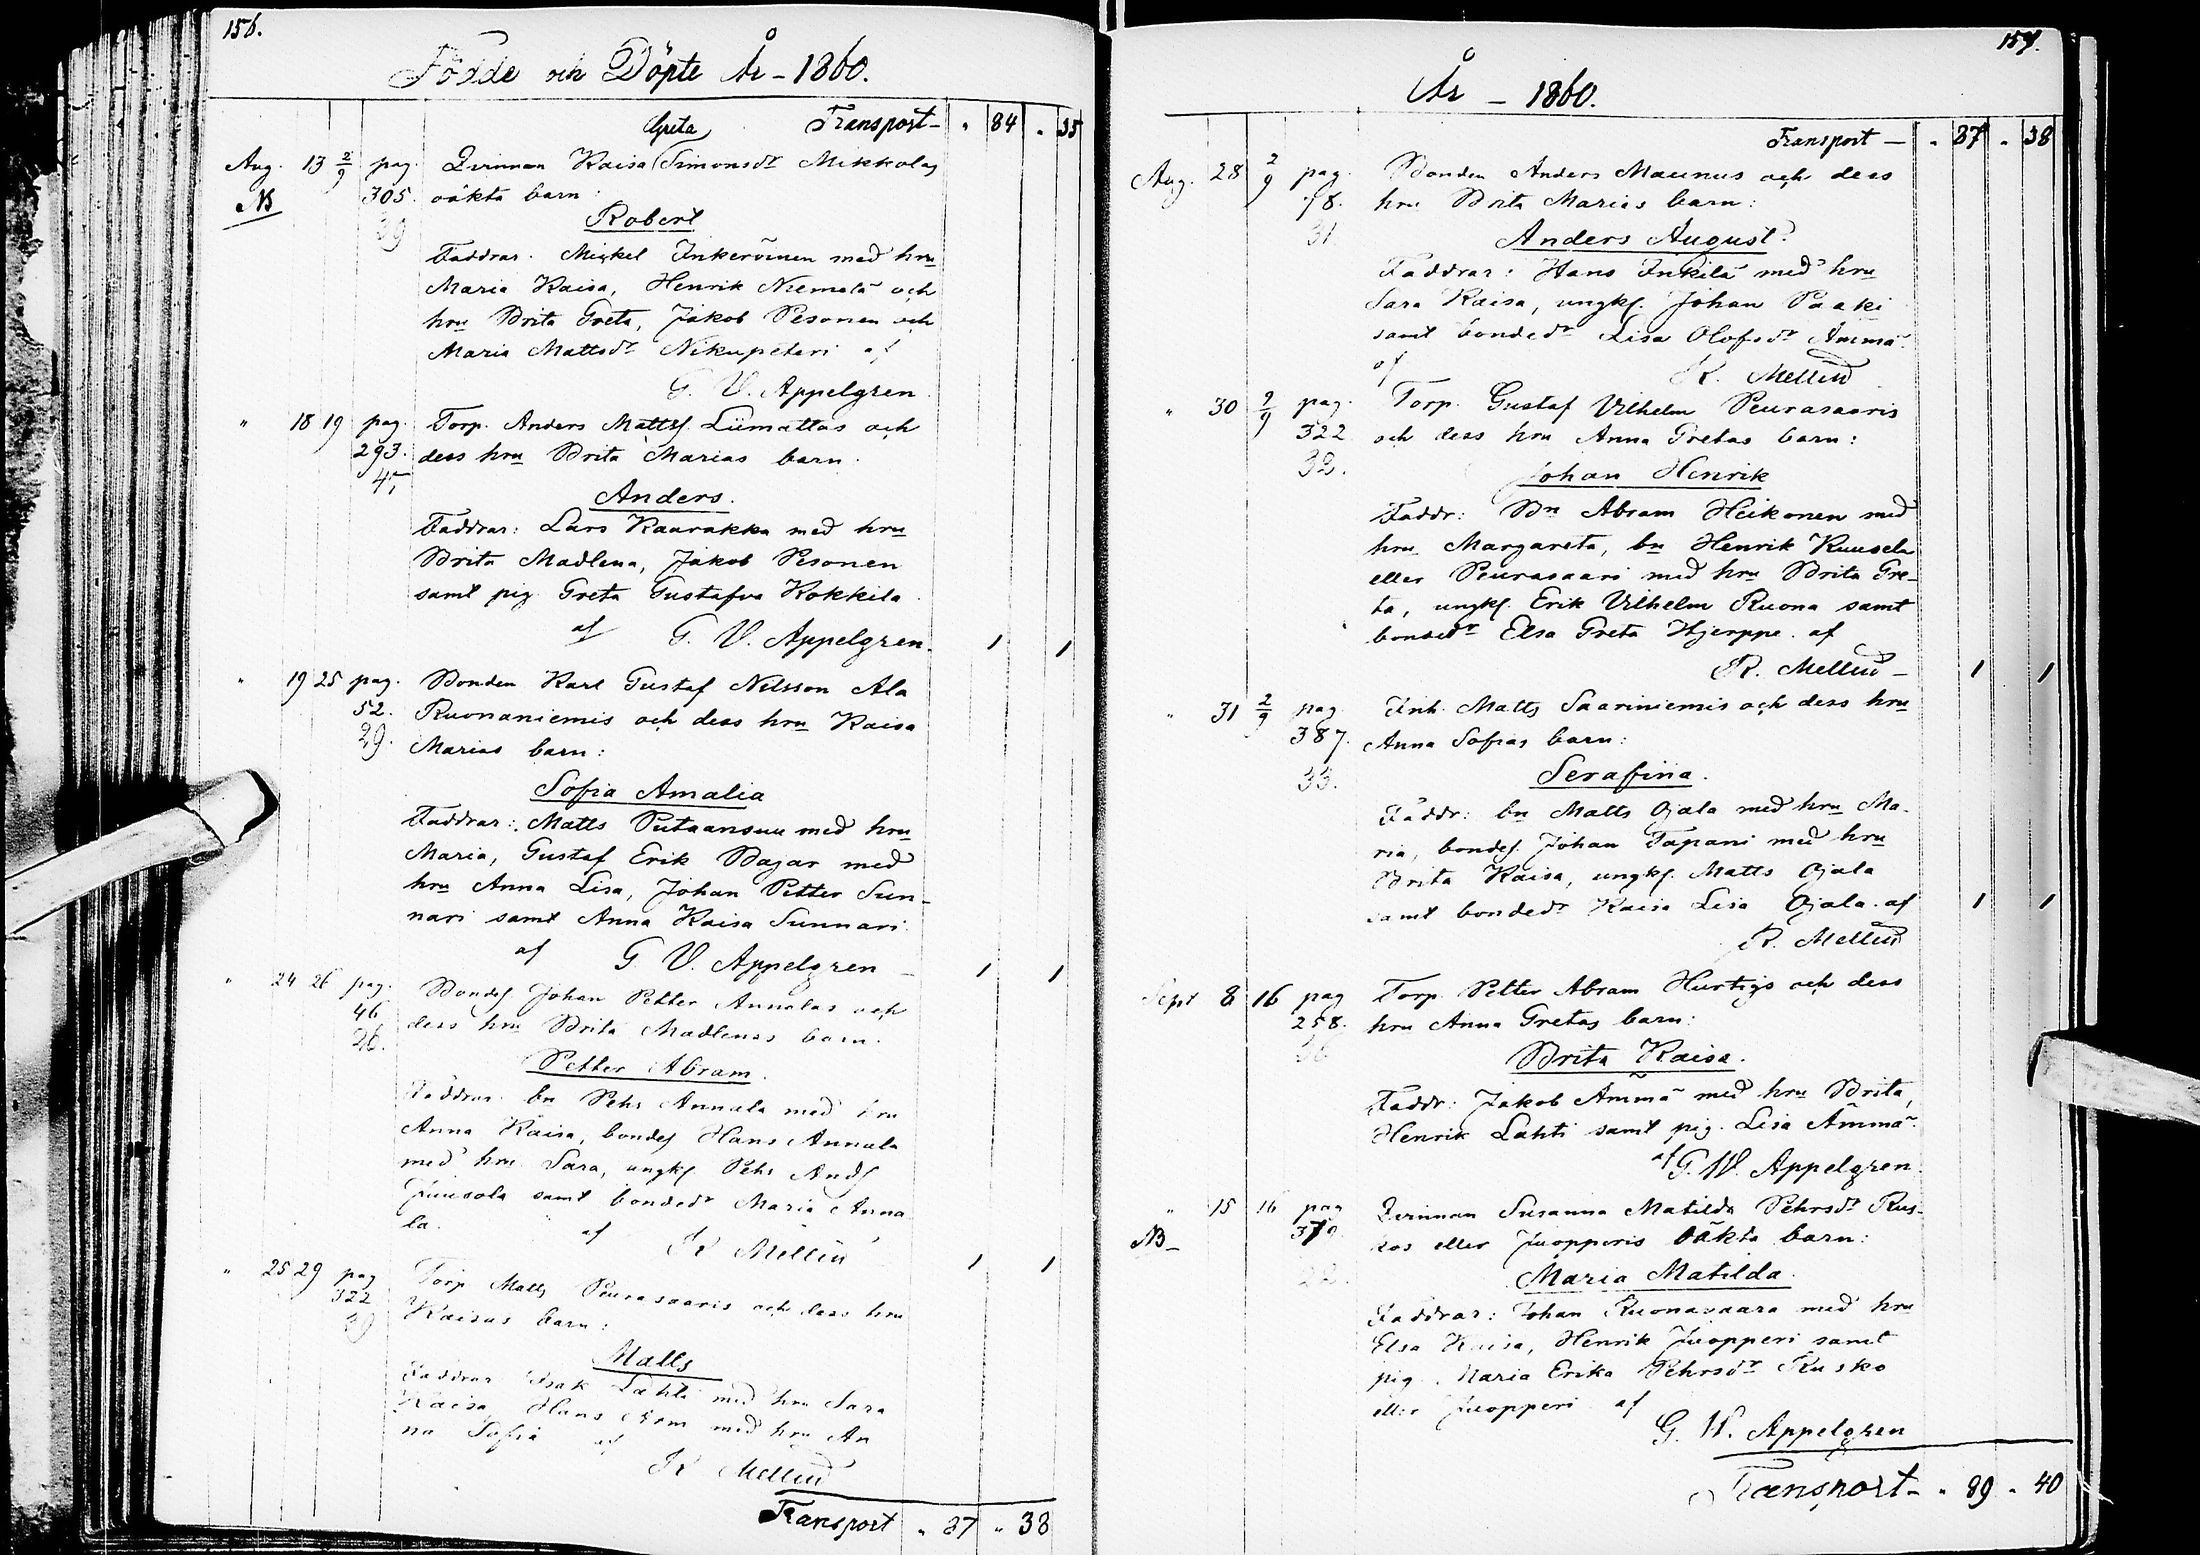 156.
Födde och Döpte År - 1860.
Transport - " 84 " 35
Aug. 13 2/9 pag. 305. 39 Qvinnan Kaisa Greta Simonsdr Mikkolas
NB oäkta barn:
Robert
Faddrar. Mickel Inkeröinen med hru
Maria Kaisa, Henrik Niemelä och
hru Brita Greta, Jakob Pesonen och
Maria Mattsdr Nikupeteri af
G. V. Appelgren.
" 18 19 pag. Torp. Anders Mattss. Liimattas och
293. dess hru Brita Marias barn.
45
Anders.
Faddrar: Lars Kaarakka med hru
Brita Madlena, Jakob Pesonen
samt pig. Greta Gustafva Kokkila.
af G. V. Appelgren. 1 1
" 19 25 pag. Bonden Karl Gustaf Nilsson Ala
52. Ruonaniemis och dess hru Kaisa
29. Marias barn:
Sofia Amalia
Faddrar: Matts Putaansuu med hru
Maria, Gustaf Erik Bagar med
hru Anna Lisa, Johan Petter Sun-
nari samt Anna Kaisa Sunnari.
af G. V. Appelgren - 1 1
" 24 26 pag. Bondes. Johan Petter Annalas och
46 dess hru Brita Madlenas barn.
26.
Petter Abram.
Faddrar. bn Pehr Annala med hru
Anna Kaisa, bondes. Hans Annala
med hru Sara, ungk. Pehr Ands.
Juusola samt bondedr Maria Anna
la. af K. Mellin 1 1
" 25 29 pag Torp Matts Peurasaaris och dess hru
322 Kaisas barn:
Matts
Faddrar Isak Lahti med hru Sara
Kaisa, Hans med hru An
na Sofia af
K Mellin
Transport " 87 " 38
157.
År - 1860.
Transport - " 87 " 38
Aug. 28 2/9 pag. Bonden Anders Maunus och dess
78. hru Brita Marias barn:
31.
Anders August.
Faddrar: Hans Inkilä med hru
Sara Kaisa, ungk. Johan Paaki
samt bondedr Lisa Olofsdr Ämmä.
af K. Mellin
" 30 2/9 pag. Torp. Gustaf Vilhelm Peurasaaris
322 och dess hru Anna Gretas barn:
32.
Johan Henrik
Faddr: Bn Abram Heikonen med
hru Margareta, bn Henrik Kuusela
eller Peurasaari med hru Brita Gre-
ta, ungk. Erik Vilhelm Ruona samt
bondedr Elsa Greta Hjerppe. af
K. Mellin - 1 1
" 31 2/9 pag. Inh. Matts Saariniemis och dess hru
387. Anna Sofias barn:
33.
Serafina.
Faddr: bn Matts Ojala med hru Ma-
ria, bondes. Johan Tapani med hru
Brita Kaisa, ungk. Matts Ojala
samt bondedr Kaisa Lisa Ojala. af 1 1
K. Mellin
Sept 8 16 pag Torp. Petter Abram Hurtigs och dess
258. hru Anna Gretas barn:
Brita Kaisa.
Faddr: Jakob Ämmä med hru Brita,
Henrik Lahti samt pig. Lisa Ämmä.
af G. W. Appelgren.
" 15 16 pag Qvinnan Susanna Matilda Pehrsdr Rus-
NB - 379 kos eller Juopperis oäkta barn:
22.
Maria Matilda.
Faddrar: Johan Ruonavaara med hru
Elsa Kaisa, Henrik Juopperi samt
pig. Maria Erika Pehrsdr Rusko
eller Juopperi af
G. W. Appelgren
Transport - " 89 " 40